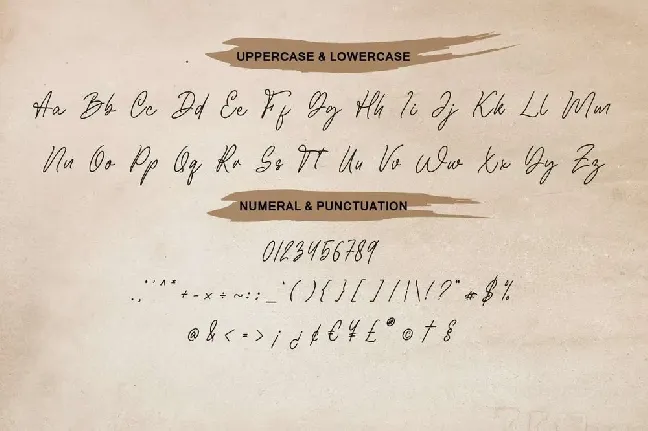 UPPERCASE & LOWERCASE
Aa Bb Cc Dd Ee Ff Gg Hh Ii Jj Kk Ll Mm
Nn Oo Pp Qq Rr Ss Tt Uu Vv Ww Xx Yy Zz
NUMERAL & PUNCTUATION
0123456789
., * ' ^ " + - x ÷ ~ : ; _ ` ( ) { } [ ] / | \ ! ? " # $ %
@ & < = > ¡ ¿ ¢ € ¥ £ ® © † §